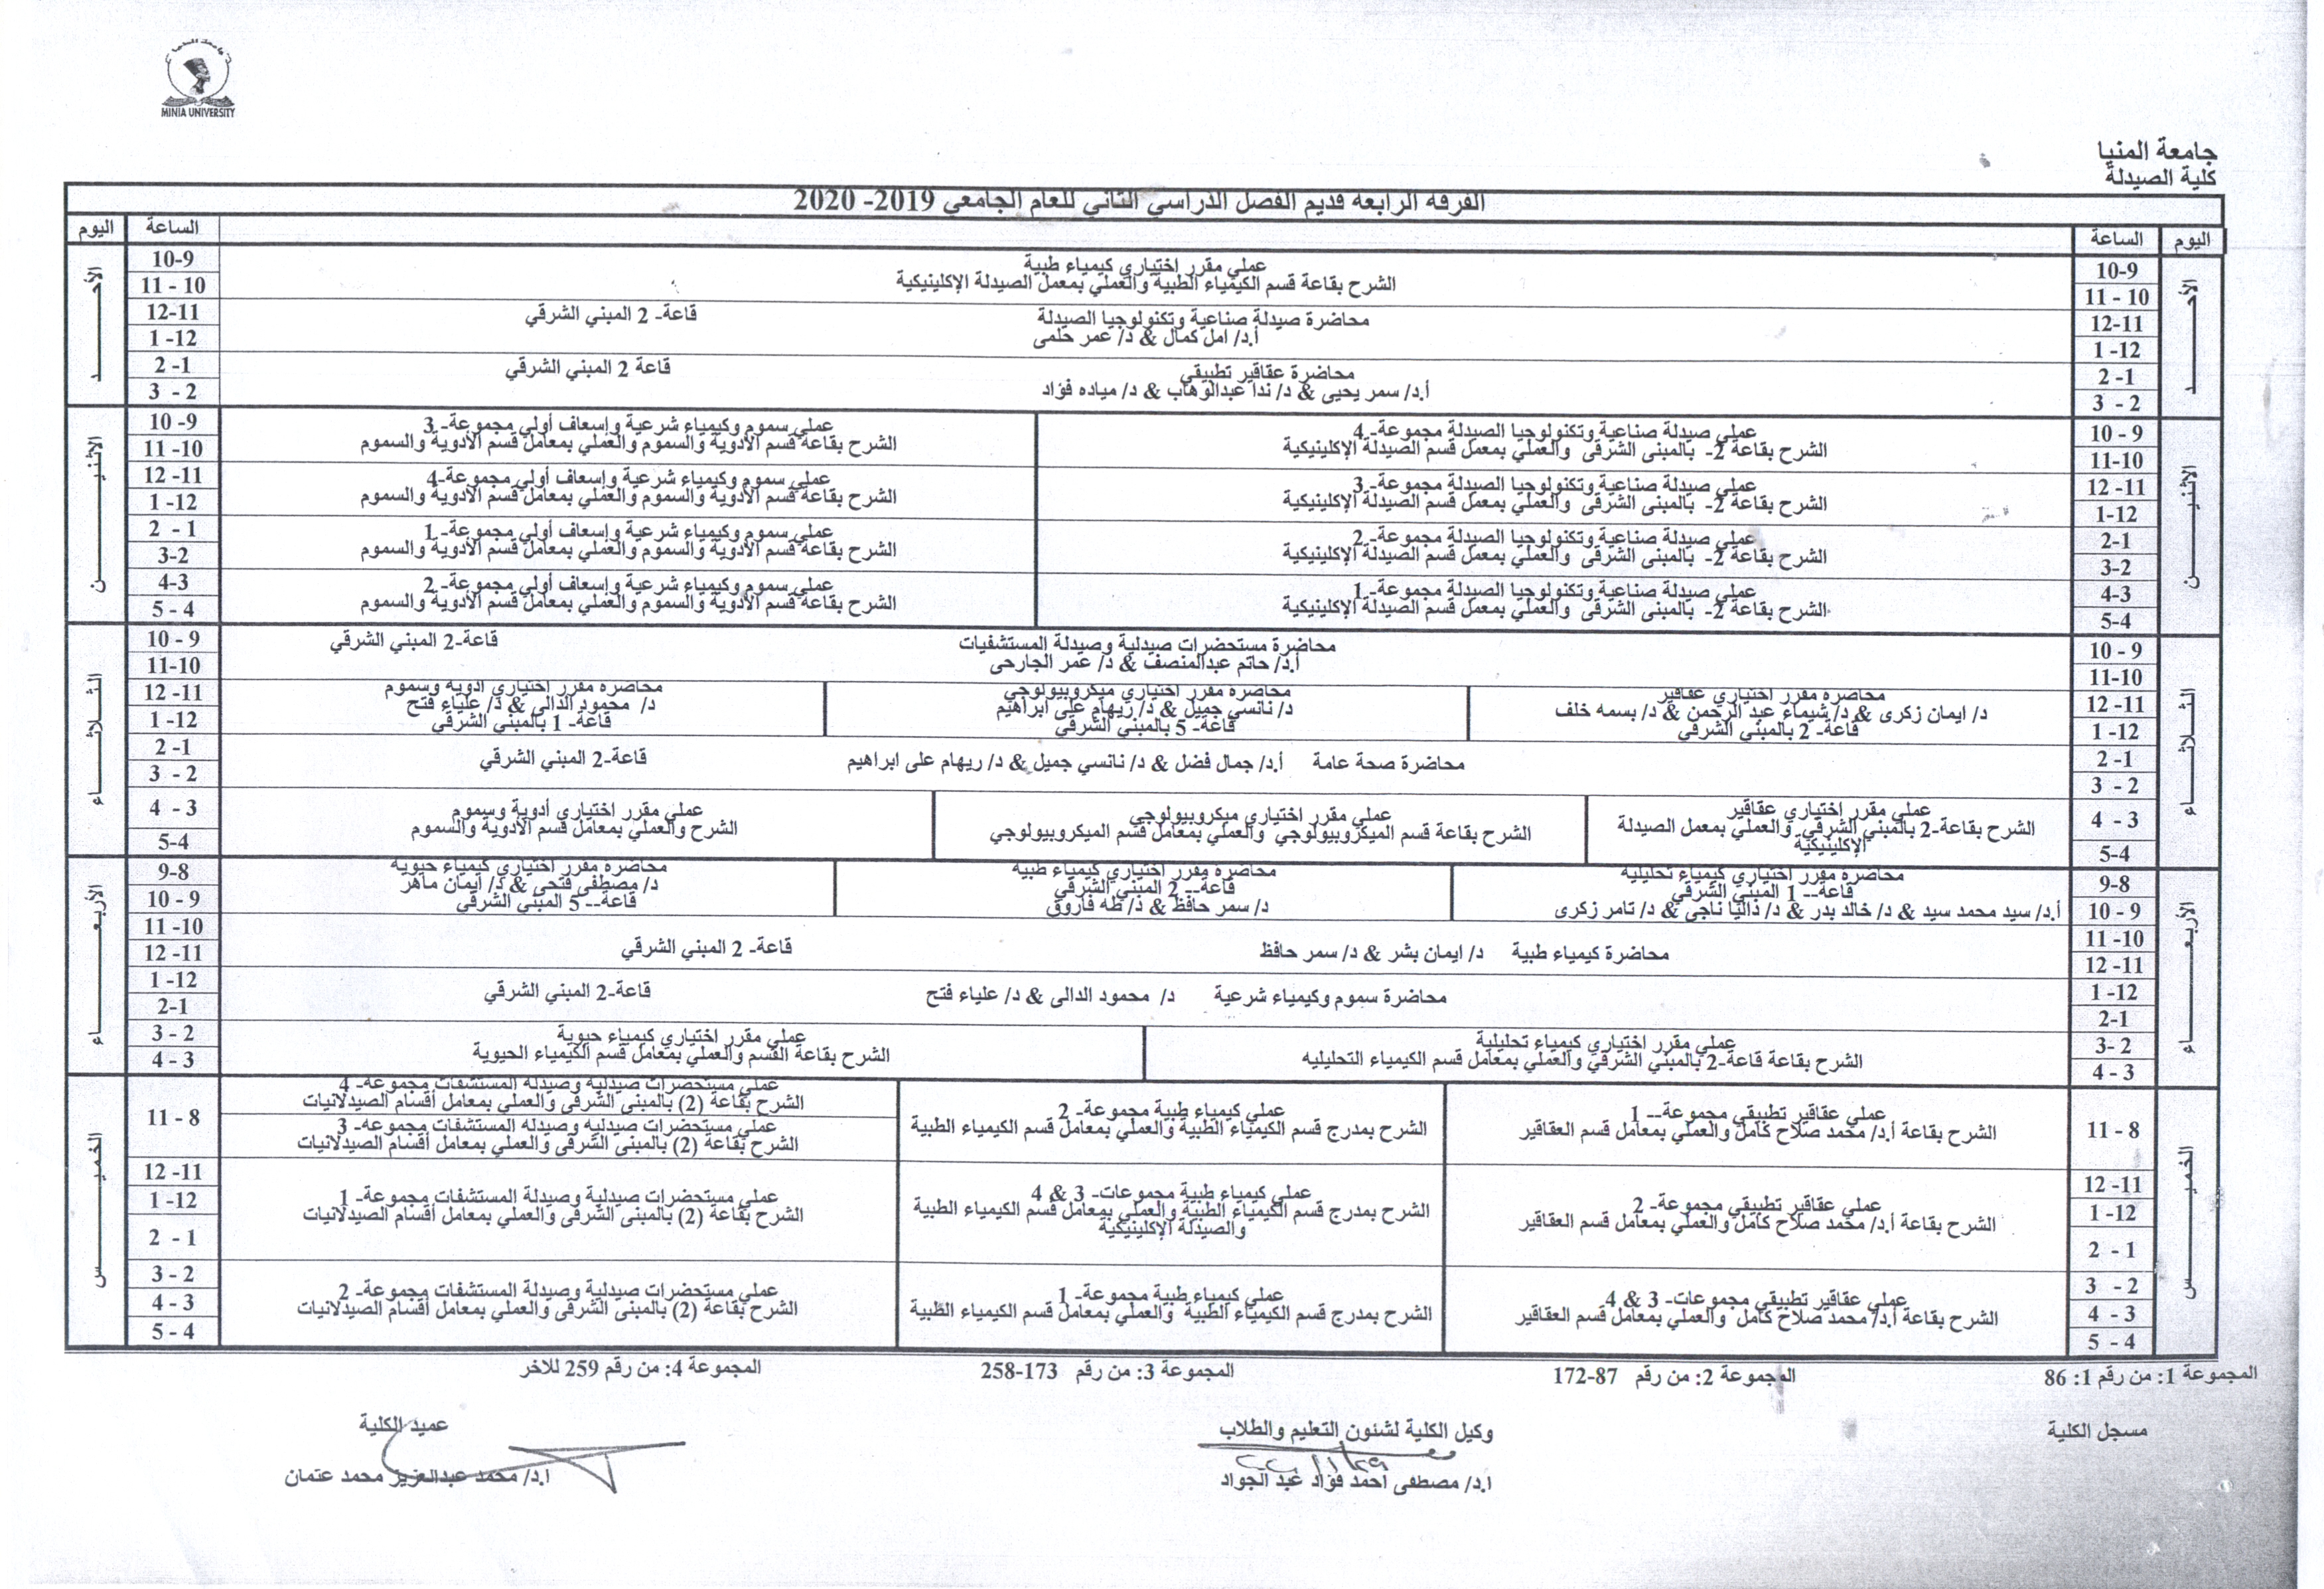 جامعة المنيا
MINIA UNIVERSITY
جامعة المنيا
كلية الصيدلة
الفرقه الرابعه قديم الفصل الدراسي الثاني للعام الجامعي 2019- 2020
اليوم الساعة الساعة اليوم
الأحــــد
10-9
11 - 10
عملي مقرر اختياري كيمياء طبية
الشرح بقاعة قسم الكيمياء الطبية والعملي بمعمل الصيدلة الإكلينيكية
10-9
11 - 10
الأحــــد
12-11
1 -12
محاضرة صيدلة صناعية وتكنولوجيا الصيدلة قاعة- 2 المبني الشرقي
أ.د/ امل كمال & د/ عمر حلمى
12-11
1 -12
2 -1
3 - 2
محاضرة عقاقير تطبيقي قاعة 2 المبني الشرقي
أ.د/ سمر يحيى & د/ ندا عبدالوهاب & د/ مياده فؤاد
2 -1
3 - 2
الاثنيــــن
10 - 9
11-10
عملي صيدلة صناعية وتكنولوجيا الصيدلة مجموعة- 4
الشرح بقاعة 2- بالمبنى الشرقى والعملي بمعمل قسم الصيدلة الإكلينيكية
عملي سموم وكيمياء شرعية وإسعاف أولي مجموعة- 3
الشرح بقاعة قسم الأدوية والسموم والعملي بمعامل قسم الأدوية والسموم
10 -9
11 -10
الاثنيــــن
12 -11
1-12
عملي صيدلة صناعية وتكنولوجيا الصيدلة مجموعة- 3
الشرح بقاعة 2- بالمبنى الشرقى والعملي بمعمل قسم الصيدلة الإكلينيكية
عملي سموم وكيمياء شرعية وإسعاف أولي مجموعة-4
الشرح بقاعة قسم الأدوية والسموم والعملي بمعامل قسم الأدوية والسموم
12 -11
1 -12
2-1
3-2
عملي صيدلة صناعية وتكنولوجيا الصيدلة مجموعة- 2
الشرح بقاعة 2- بالمبنى الشرقى والعملي بمعمل قسم الصيدلة الإكلينيكية
عملي سموم وكيمياء شرعية وإسعاف أولي مجموعة- 1
الشرح بقاعة قسم الأدوية والسموم والعملي بمعامل قسم الأدوية والسموم
2 - 1
3-2
4-3
5-4
عملي صيدلة صناعية وتكنولوجيا الصيدلة مجموعة- 1
الشرح بقاعة 2- بالمبنى الشرقى والعملي بمعمل قسم الصيدلة الإكلينيكية
عملي سموم وكيمياء شرعية وإسعاف أولي مجموعة- 2
الشرح بقاعة قسم الأدوية والسموم والعملي بمعامل قسم الأدوية والسموم
4-3
5 - 4
الثلاثــــاء
10 - 9
11-10
محاضرة مستحضرات صيدلية وصيدلة المستشفيات قاعة-2 المبني الشرقي
أ.د/ حاتم عبدالمنصف & د/ عمر الجارحى
10 - 9
11-10
الثلاثــــاء
12 -11
1 -12
محاضرة مقرر اختياري عقاقير
د/ ايمان زكرى & د/ شيماء عبد الرحمن & د/ بسمه خلف
قاعة- 2 بالمبني الشرقي
محاضرة مقرر اختياري ميكروبيولوجي
د/ نانسي جميل & د/ ريهام على ابراهيم
قاعة- 5 بالمبني الشرقي
محاضرة مقرر اختياري أدوية وسموم
د/ محمود الدالى & د/ علياء فتح
قاعة- 1 بالمبني الشرقي
12 -11
1 -12
2 -1
3 - 2
محاضرة صحة عامة أ.د/ جمال فضل & د/ نانسي جميل & د/ ريهام على ابراهيم قاعة-2 المبني الشرقي
2 -1
3 - 2
4 - 3
5-4
عملي مقرر اختياري عقاقير
الشرح بقاعة-2 بالمبني الشرقي والعملي بمعمل الصيدلة
الإكلينيكية
عملي مقرر اختياري ميكروبيولوجي
الشرح بقاعة قسم الميكروبيولوجي والعملي بمعامل قسم الميكروبيولوجي
عملي مقرر اختياري أدوية وسموم
الشرح والعملي بمعامل قسم الأدوية والسموم
4 - 3
5-4
الأربعــــاء
9-8
10 - 9
محاضرة مقرر اختياري كيمياء تحليلية
قاعة-- 1 المبني الشرقي
أ.د/ سيد محمد سيد & د/ خالد بدر & د/ داليا ناجي & د/ تامر زكرى
محاضرة مقرر اختياري كيمياء طبية
قاعة-- 2 المبني الشرقي
د/ سمر حافظ & د/ طه فاروق
محاضرة مقرر اختياري كيمياء حيوية
د/ مصطفى فتحى & د/ ايمان ماهر
قاعة-- 5 المبني الشرقي
9-8
10 - 9
الأربعــــاء
11 -10
12 -11
محاضرة كيمياء طبية د/ ايمان بشر & د/ سمر حافظ قاعة- 2 المبني الشرقي
11 -10
12 -11
1 -12
2-1
محاضرة سموم وكيمياء شرعية د/ محمود الدالى & د/ علياء فتح قاعة-2 المبني الشرقي
1 -12
2-1
3- 2
4 - 3
عملي مقرر اختياري كيمياء تحليلية
الشرح بقاعة قاعة-2 بالمبني الشرقي والعملي بمعامل قسم الكيمياء التحليليه
عملي مقرر اختياري كيمياء حيوية
الشرح بقاعة القسم والعملي بمعامل قسم الكيمياء الحيوية
3 - 2
4 - 3
الخميــــس
11 - 8
عملي عقاقير تطبيقي مجموعة-- 1
الشرح بقاعة أ.د/ محمد صلاح كامل والعملي بمعامل قسم العقاقير
عملي كيمياء طبية مجموعة- 2
الشرح بمدرج قسم الكيمياء الطبية والعملي بمعامل قسم الكيمياء الطبية
عملي مستحضرات صيدلية وصيدلة المستشفات مجموعة- 4
الشرح بقاعة (2) بالمبنى الشرقى والعملي بمعامل أقسام الصيدلانيات
عملي مستحضرات صيدلية وصيدلة المستشفات مجموعة- 3
الشرح بقاعة (2) بالمبنى الشرقى والعملي بمعامل أقسام الصيدلانيات
11 - 8
الخميــــس
12 -11
1 -12
2 - 1
عملي عقاقير تطبيقي مجموعة- 2
الشرح بقاعة أ.د/ محمد صلاح كامل والعملي بمعامل قسم العقاقير
عملي كيمياء طبية مجموعات- 3 & 4
الشرح بمدرج قسم الكيمياء الطبية والعملي بمعامل قسم الكيمياء الطبية
والصيدلة الإكلينيكية
عملي مستحضرات صيدلية وصيدلة المستشفات مجموعة- 1
الشرح بقاعة (2) بالمبنى الشرقى والعملي بمعامل أقسام الصيدلانيات
12 -11
1 -12
2 - 1
3 - 2
4 - 3
5 - 4
عملي عقاقير تطبيقي مجموعات- 3 & 4
الشرح بقاعة أ.د/ محمد صلاح كامل والعملي بمعامل قسم العقاقير
عملي كيمياء طبية مجموعة- 1
الشرح بمدرج قسم الكيمياء الطبية والعملي بمعامل قسم الكيمياء الطبية
عملي مستحضرات صيدلية وصيدلة المستشفات مجموعة- 2
الشرح بقاعة (2) بالمبنى الشرقى والعملي بمعامل أقسام الصيدلانيات
3 - 2
4 - 3
5 - 4
المجموعة 1: من رقم 1: 86 المجموعة 2: من رقم 87-172 المجموعة 3: من رقم 173-258 المجموعة 4: من رقم 259 للاخر
مسجل الكلية وكيل الكلية لشئون التعليم والطلاب عميد الكلية
ا.د/ مصطفى احمد فؤاد عبد الجواد ا.د/ محمد عبدالعزيز محمد عثمان